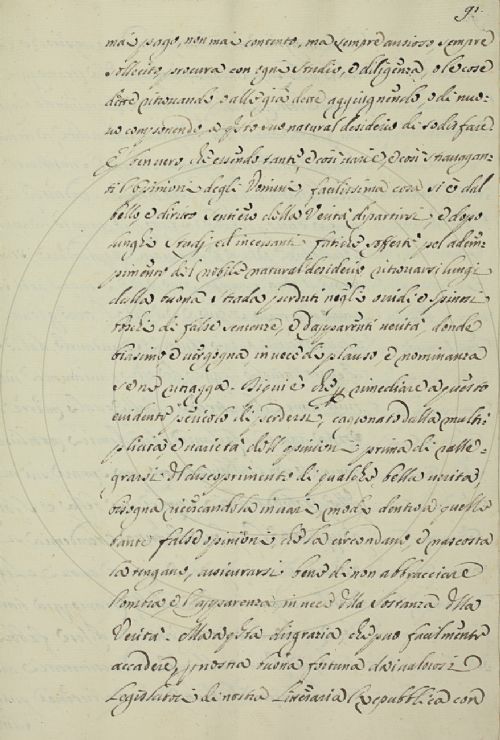 91.
mai pago, non mai contento, ma sempre ansioso sempre
sollecito, procura con ogni studio, e diligenza, o le cose
dette ritrovando, o alle già dette aggiugnendo, o di nuo-
vo componendo, a suo natural desiderio di sodisfare
È ben vero, che essendo tante, e così varie, e così stravagan-
ti l'opinioni degli Uomini, facilissima cosa si è dal
bello, e diritto sentiero della Verità dipartirsi, e dopo
lunghi studj ed incessanti fatiche sofferte pel adem-
pimento del nobile natural desiderio ritrovarsi lungi
dalla buona strada perduti negli ovidi, e spinosi
boschi di false sentenze, e d'apparenti verità, donde
biasimo e vergogna in vece di plauso e nominanza
se ne ritragga. Quivi è che p rimediare a questo
evidente pericolo di perdersi, cagionato dalla multi-
plicità e varietà dell'opinioni prima di ralle-
grarsi del discoprimento di qualche bella verità,
bisogna ricercandola in varie mode dentro a quelle
tante false opinioni, che la circondano, e nascosta
la tengano, assicurarsi bene di non abbracciare
l'ombra e l'apparenza in vece della sostanza della
Verità. Ma a disgrazia, che può facilmente
accadere, p nostra buona fortuna da i valorosi
Legislatori di nostra Literaria Repubblica con